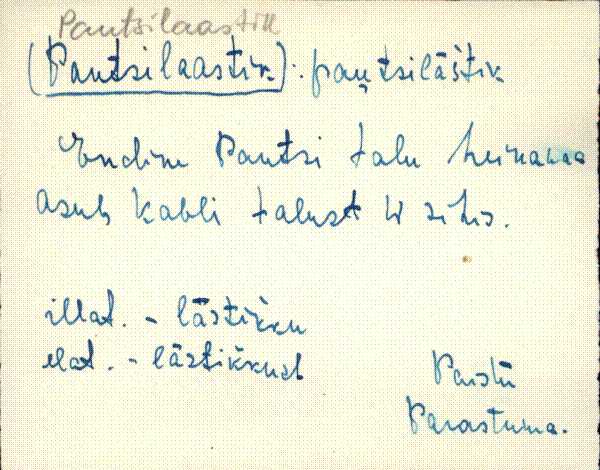 Pantsilaastik
(Pantsilaastik): pan̦tsilāštik
Endine Pantsi talu heinamaa
asub Kabli talust W sihis.
illat. - lāstikku
elat. - lāstikkust
Paistu
Parastuma.